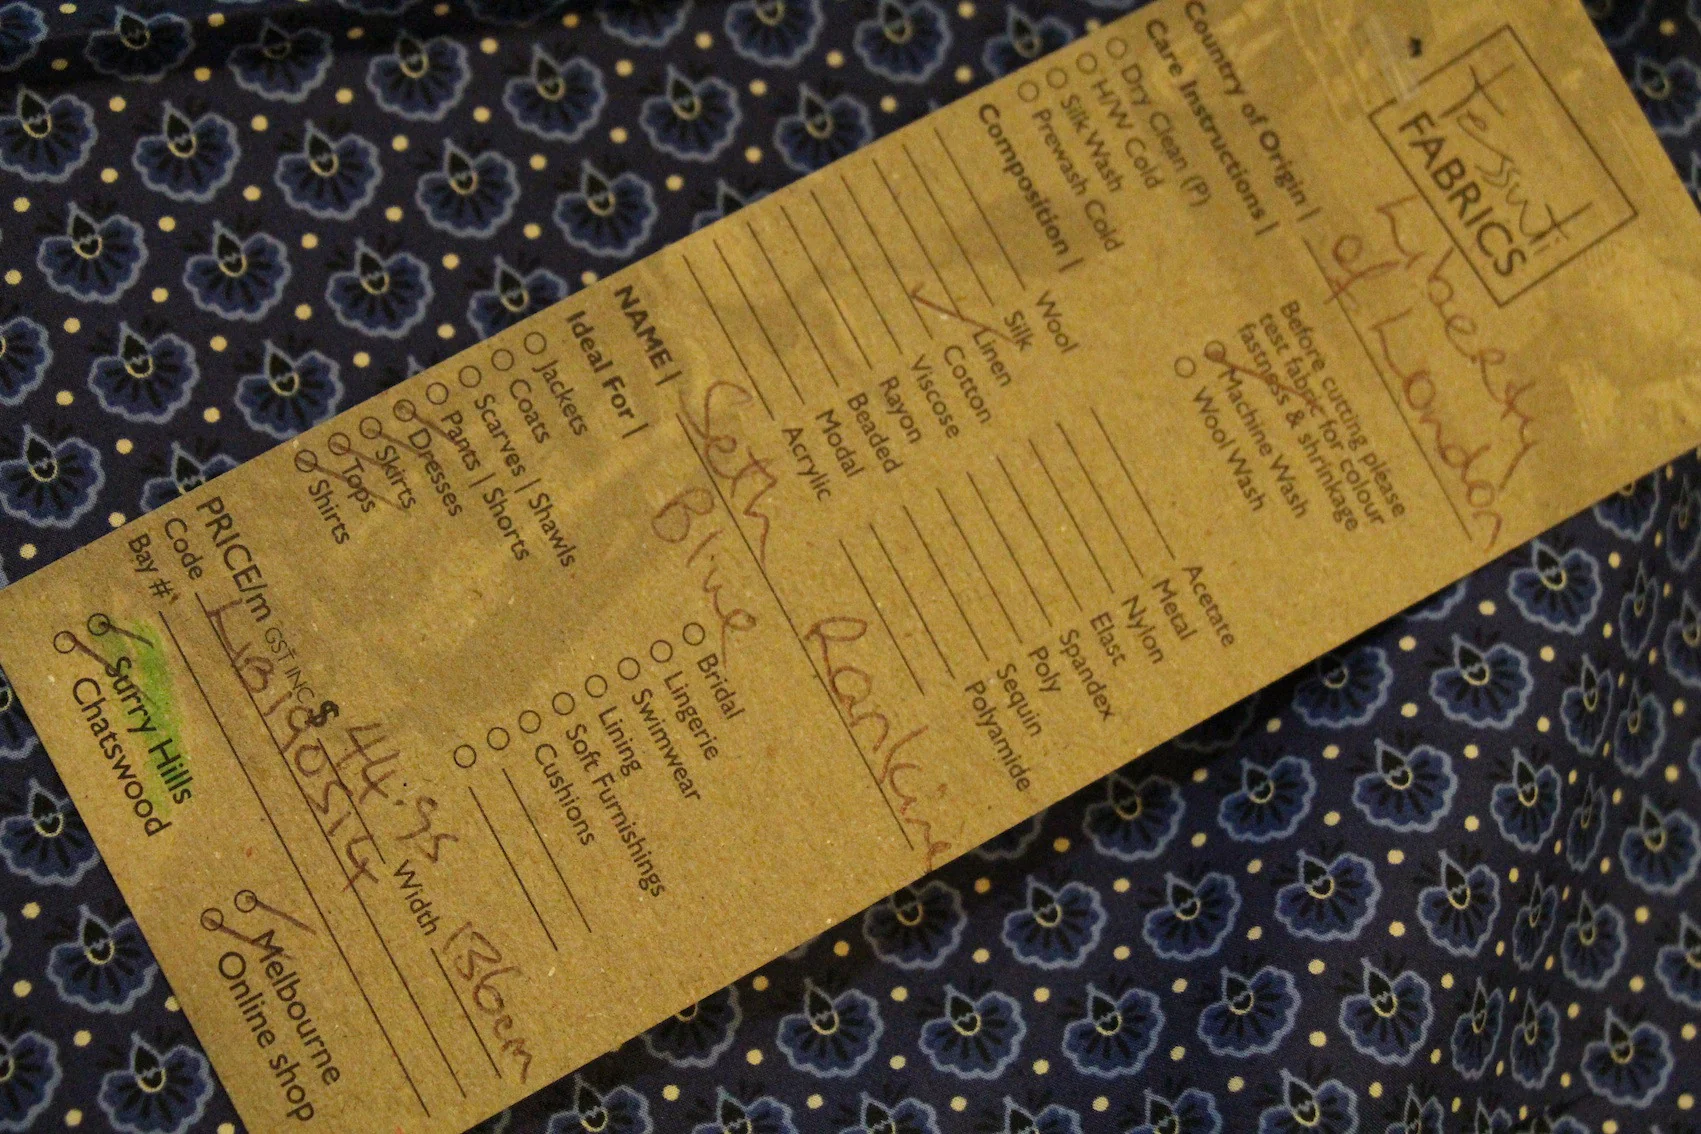 Tessuti
FABRICS
Liberty
of London
Country of Origin |
Care Instructions |
Dry Clean (P)
H/W Cold
Silk Wash
Prewash Cold
Before cutting please
test fabric for colour
fastness & shrinkage
Machine Wash
Wool Wash
Composition |
Wool
Silk
Linen
Cotton
Viscose
Rayon
Beaded
Modal
Acrylic
Acetate
Metal
Nylon
Elast
Spandex
Poly
Sequin
Polyamide
NAME | Seth Rankine
Blue
Ideal For |
Jackets
Coats
Scarves | Shawls
Pants | Shorts
Dresses
Skirts
Tops
Shirts
Bridal
Lingerie
Swimwear
Lining
Soft Furnishings
Cushions
PRICE/m GST INC $ 44.95 Width 136cm
Code
Bay #
Surry Hills
Chatswood
Melbourne
Online shop